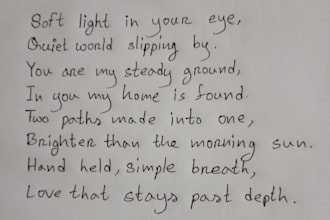 Soft light in your eye,
Quiet world slipping by.
You are my steady ground,
In you my home is found.
Two paths made into one,
Brighter than the morning sun.
Hand held, simple breath,
Love that stays past depth.